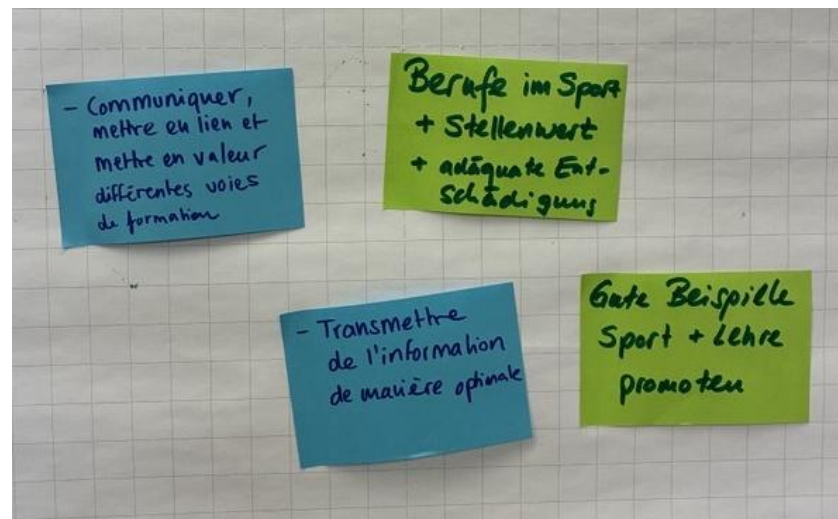 - Communiquer,
mettre en lien et
mettre en valeur
différentes voies
de formation
Berufe im Sport
+ Stellenwert
+ adäquate Ent-
schädigung
- Transmettre
de l'information
de manière optimale
Gute Beispiele
Sport + Lehre
promoten